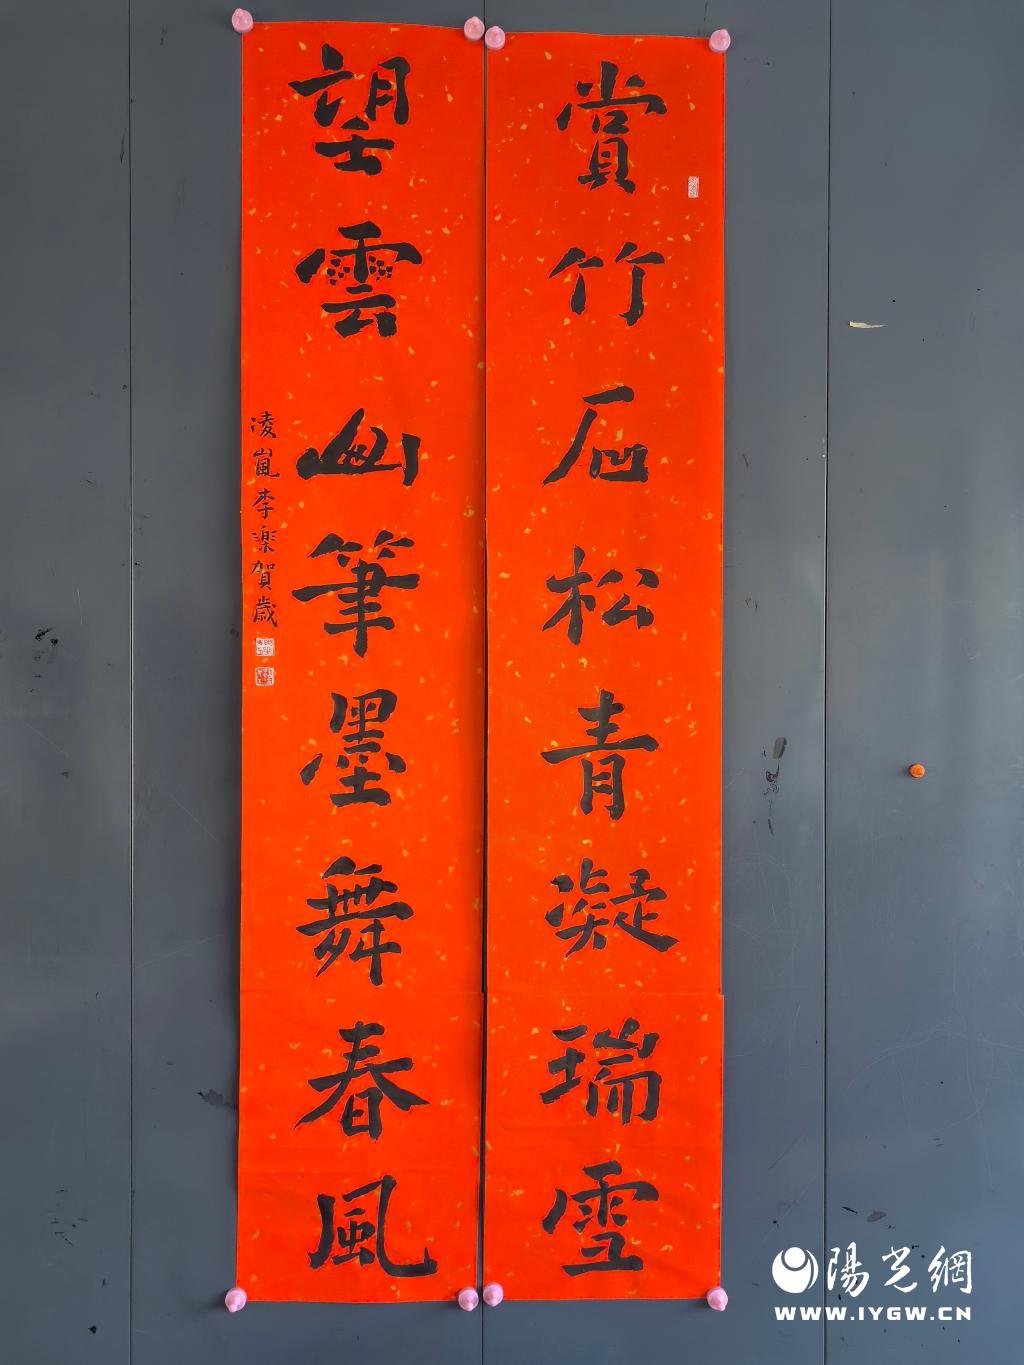 賞竹石松青凝瑞雪
望雲山筆墨舞春風
凌嵐李樂賀歲
陽光網
WWW.IYGW.CN